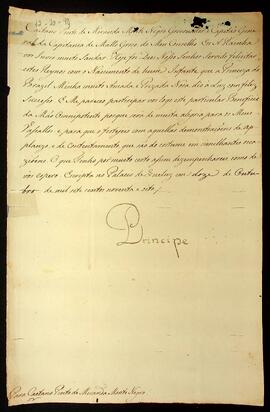 Caetano Pinto de Miranda Monte Negro Governador e Capitaõ Gene
ral da Capitania de Matto Groso do Meu Conselho Eu A Rainha
vos Envio muito Saudar. Hoje foi Deos Noso Senhor Servido felicitar
estes Reynos com o Nascimento de hum Infante que a Princeza do
Brazil Minha muito Amada e Prezada Nora deo á Luz com feliz
Sucesso. E Me pareceo participar vos logo este particular Beneficio
da Maõ Omnipotente porque sera de muita alegria para os Meus
Vasallos e para que o festejeis com aquellas demonstraçoens de ap
plauzo e de Contentamento, que saõ do costume em semelhantes oc
cazioens. O que Tenho por muito certo assim dezempenhareis como de
vos espero. Escripta no Palacio de Queluz em doze de Outu
bro de mil sete centos noventa e oito
Principe
Para Caetano Pinto de Miranda Monte Negro